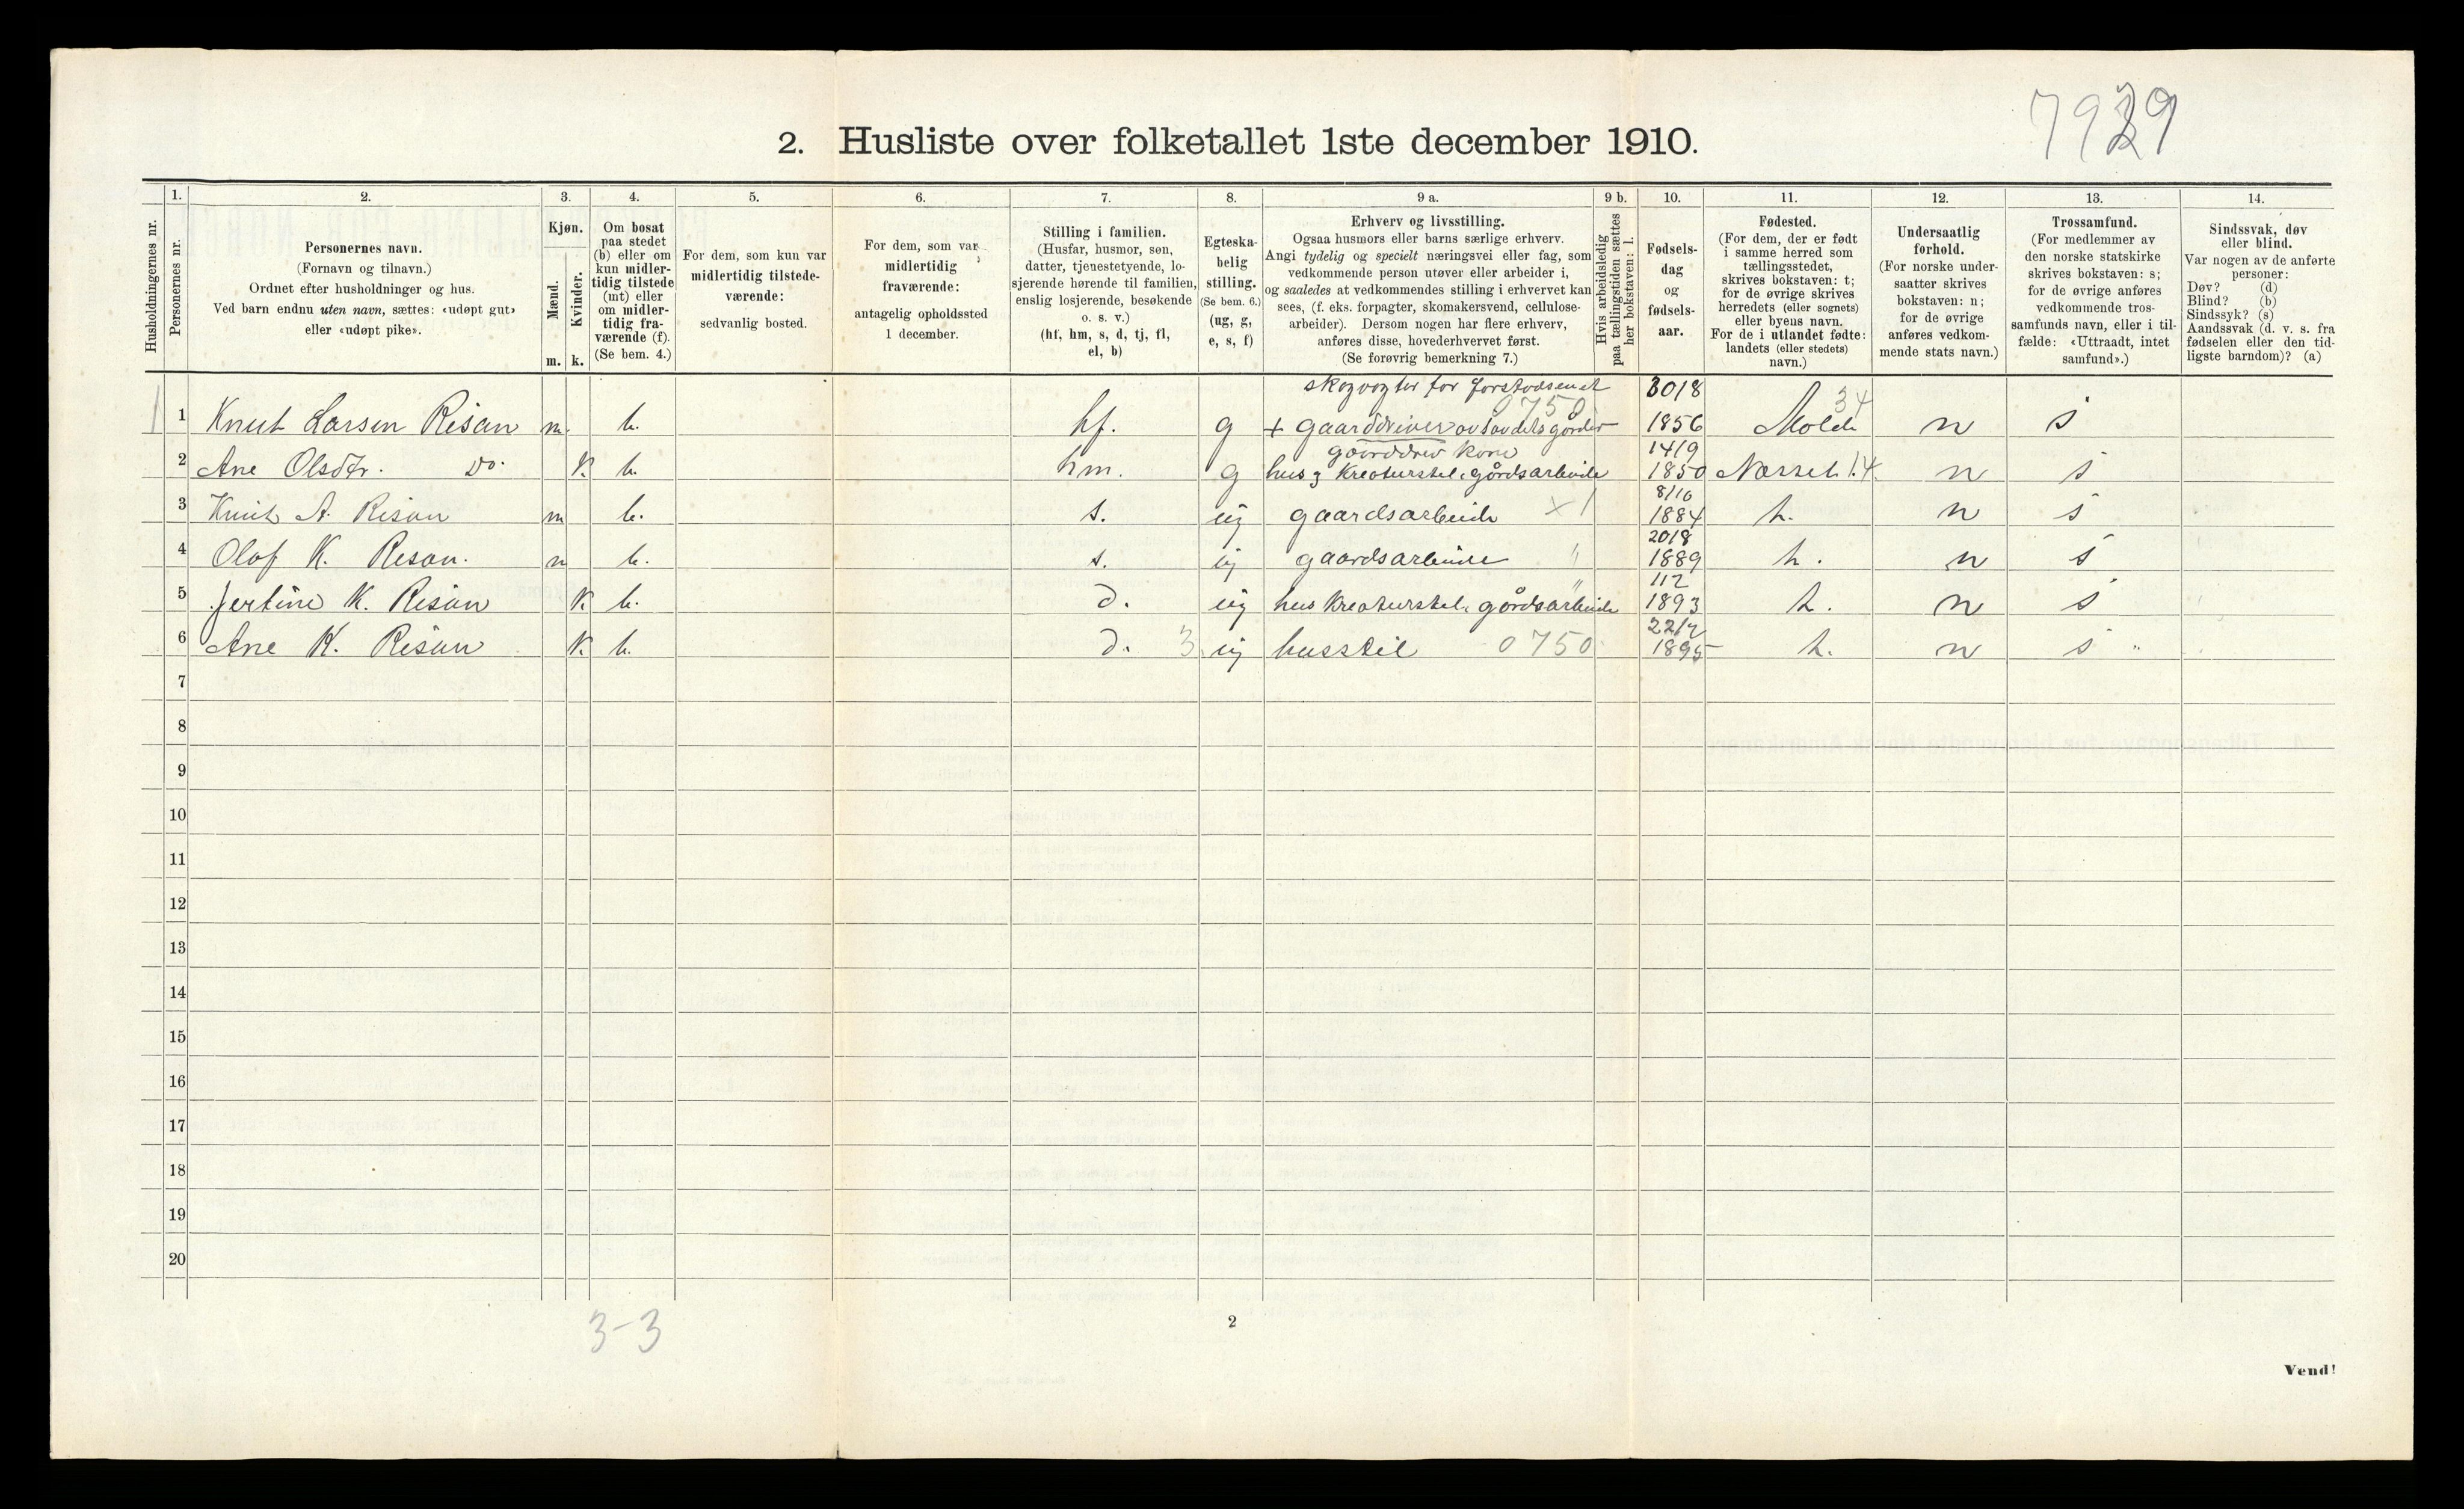 7929
2. Husliste over folketallet 1ste december 1910.
Husholdningernes nr.
1.
Personernes nr.
2.
Personernes navn.
(Fornavn og tilnavn.)
Ordnet efter husholdninger og hus.
Ved barn endnu uten navn, sættes: «udøpt gut»
eller «udøpt pike».
3.
Kjøn.
Mænd.
Kvinder.
m. k.
4.
Om bosat
paa stedet
(b) eller om
kun midler-
tidig tilstede
(mt) eller
om midler-
tidig fra-
værende (f).
(Se bem. 4.)
5.
For dem, som kun var
midlertidig tilstede-
værende:
sedvanlig bosted.
6.
For dem, som var
midlertidig
fraværende:
antagelig opholdssted
1 december.
7.
Stilling i familien.
(Husfar, husmor, søn,
datter, tjenestetyende, lo-
sjerende hørende til familien,
enslig losjerende, besøkende
o. s. v.)
(hf, hm, s, d, tj, fl,
el, b)
8.
Egteska-
belig
stilling.
(Se bem. 6.)
(ug, g,
e, s, f)
9 a.
Erhverv og livsstilling.
Ogsaa husmors eller barns særlige erhverv.
Angi tydelig og specielt næringsvei eller fag, som
vedkommende person utøver eller arbeider i,
og saaledes at vedkommendes stilling i erhvervet kan
sees, (f. eks. forpagter, skomakersvend, cellulose-
arbeider). Dersom nogen har flere erhverv,
anføres disse, hovederhvervet først.
(Se forøvrig bemerkning 7.)
9 b.
Hvis arbeidsledig
paa tællingstiden sættes
her bokstaven: l.
10.
Fødsels-
dag
og
fødsels-
aar.
11.
Fødested.
(For dem, der er født
i samme herred som
tællingsstedet,
skrives bokstaven: t;
for de øvrige skrives
herredets (eller sognets)
eller byens navn.
For de i utlandet fødte:
landets (eller stedets)
navn.)
12.
Undersaatlig
forhold.
(For norske under-
saatter skrives
bokstaven: n;
for de øvrige
anføres vedkom-
mende stats navn.)
13.
Trossamfund.
(For medlemmer av
den norske statskirke
skrives bokstaven: s;
for de øvrige anføres
vedkommende tros-
samfunds navn, eller i til-
fælde: «Uttraadt, intet
samfund».)
14.
Sindssvak, døv
eller blind.
Var nogen av de anførte
personer:
Døv? (d)
Blind? (b)
Sindssyk? (s)
Aandssvak (d. v. s. fra
fødselen eller den tid-
ligste barndom)? (a)
skogvogter for 30/8
0750 34
1 1 Knut Larsen Risan m. b. hf. g + gaarddriver 1856 Molde n s
gaarddrev kone 14/9
2 Ane Olsdtr. Do. K. b. hm. g hus & Kreaturstel, gårdsarbeide 1850 Nesset 14. n s
8/10
3 Knut A. Risan m b. s. ug gaardsarbeide × 1 1884 h. n s
20/8
4 Olaf K. Risan. m b. s. ug gaardsarbeide " 1889 h. n s
1/2
5 Jertine K. Risan K. b. d. ug hus Kreaturstel, gårdsarbeide " 1893 h. n s
22/7
6 Ane K. Risan K. b. d. 3 ug husstel 0750 1895 h. n s "
7
8
9
10
11
12
13
14
15
16
17
18
19
20
3-3
2
Vend!